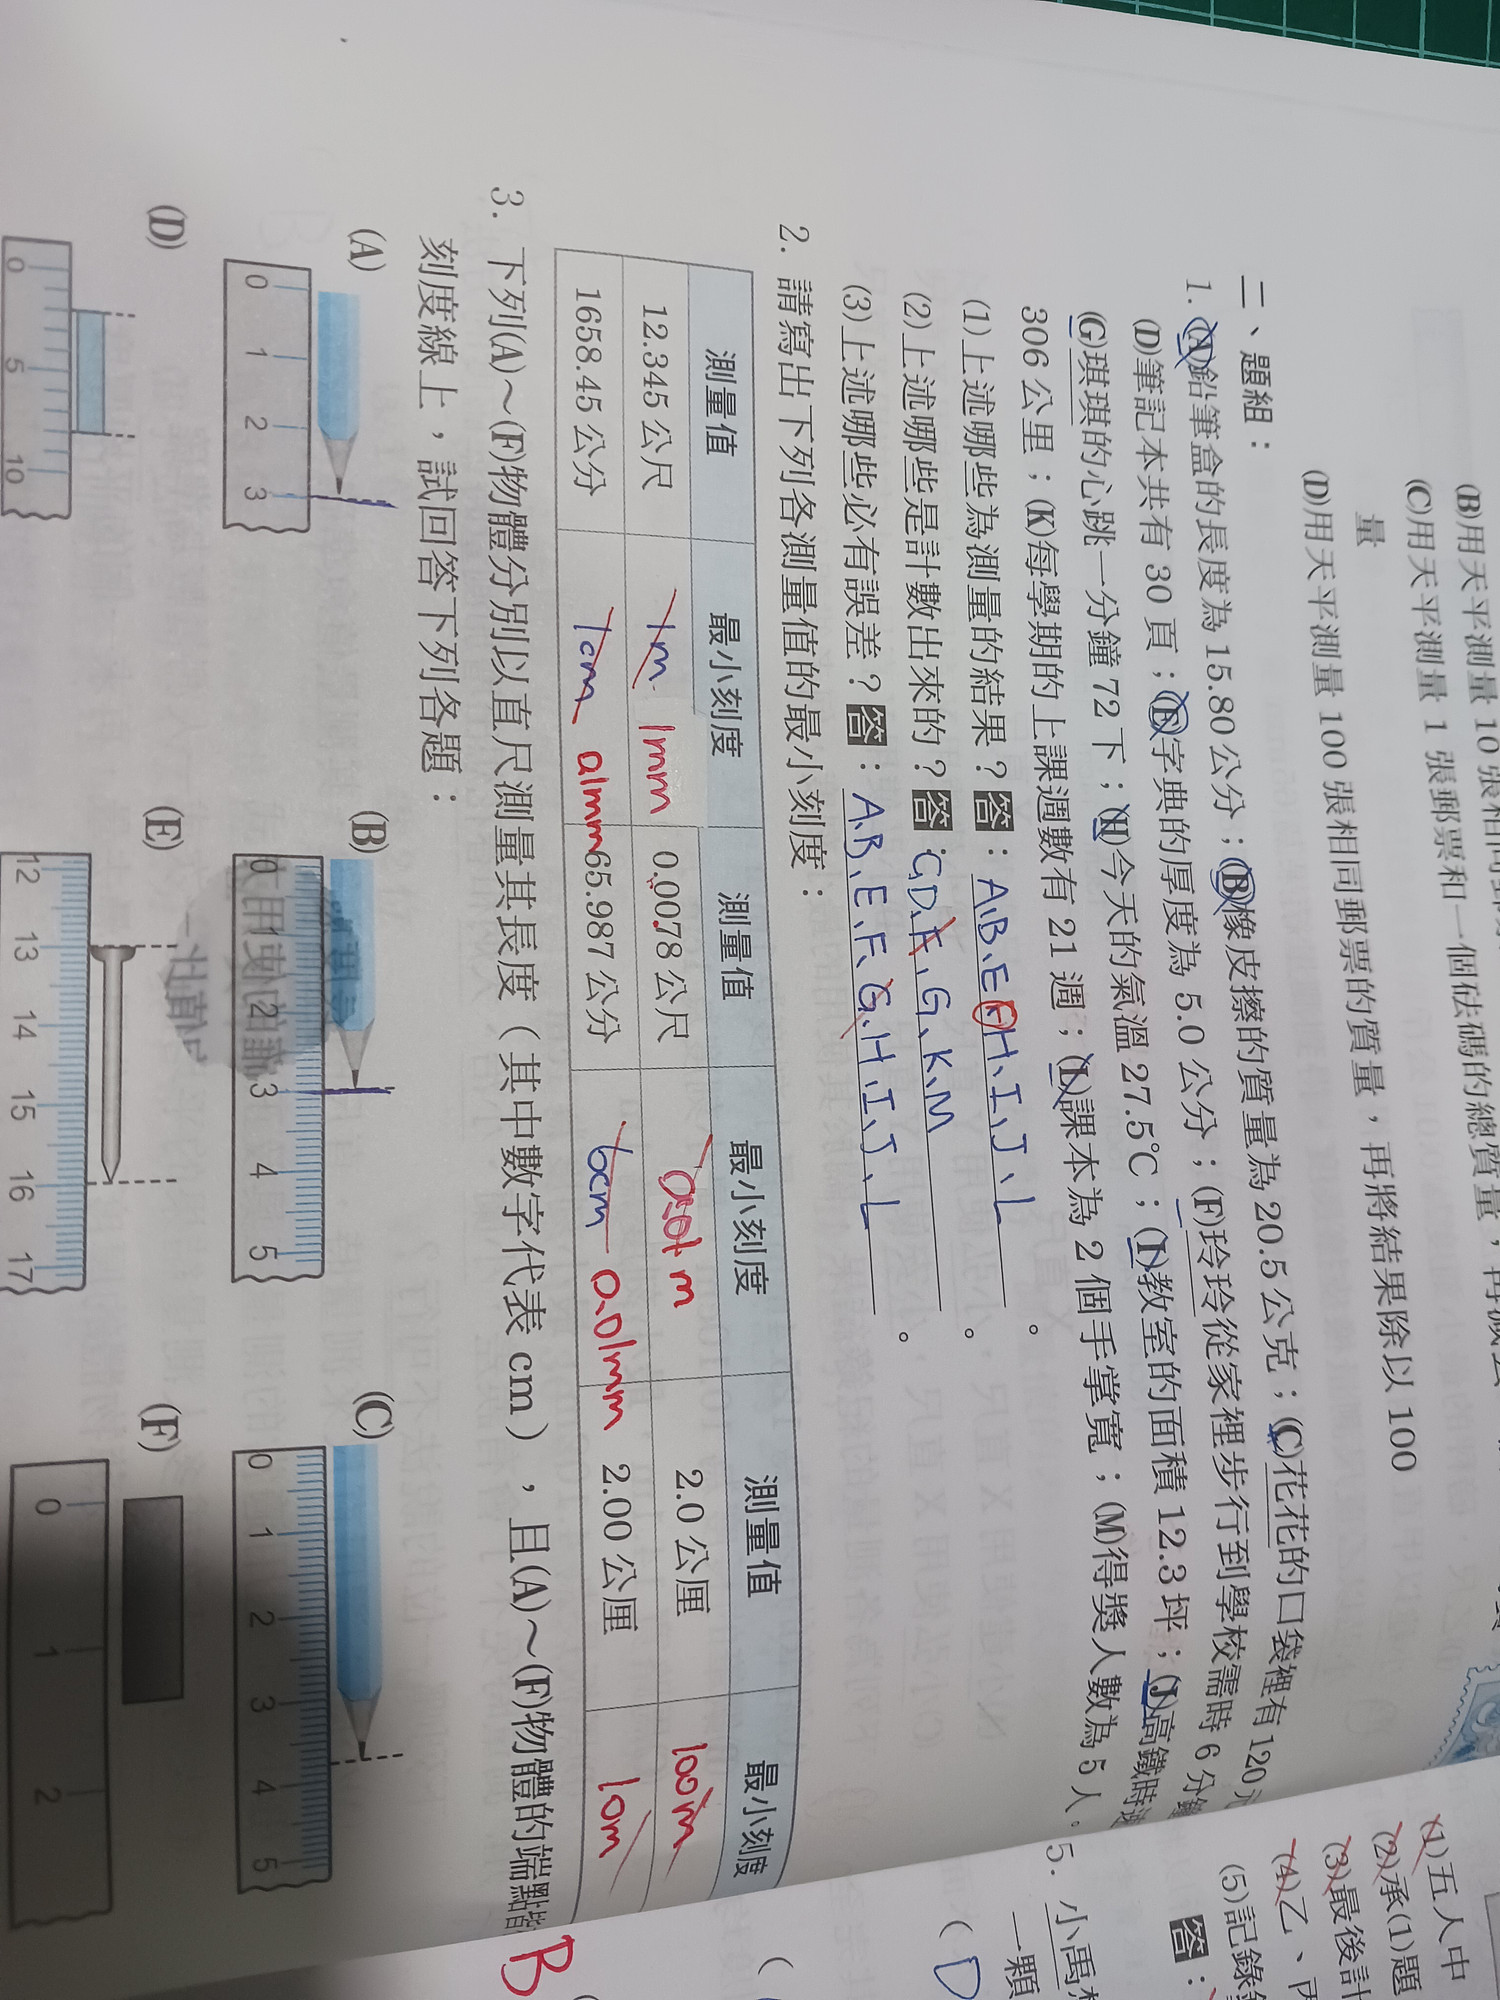 (B)用天平測量 10 張相同郵
(C)用天平測量 1 張郵票和一個砝碼的總質量，再減去
量
(D)用天平測量 100 張相同郵票的質量，再將結果除以 100
二、題組：
1. (A)鉛筆盒的長度為 15.80 公分；(B)橡皮擦的質量為 20.5 公克；(C)花花的口袋裡有 120
(D)筆記本共有 30 頁；(E)字典的厚度為 5.0 公分；(F)玲玲從家裡步行到學校需時 6 分鐘
(G)琪琪的心跳一分鐘 72 下；(H)今天的氣溫 27.5℃；(I)教室的面積 12.3 坪；(J)高鐵時速
306 公里；(K)每學期的上課週數有 21 週；(L)課本為 2 個手掌寬；(M)得獎人數為 5 人。
(1)上述哪些為測量的結果？答：A、B、E、F、H、I、J、L。
(2)上述哪些是計數出來的？答：C、D、F、G、K、M。
(3)上述哪些必有誤差？答：A、B、E、F、G、H、I、J、L
2. 請寫出下列各測量值的最小刻度：
測量值 最小刻度 測量值 最小刻度 測量值 最小刻度
12.345 公尺 1m 1mm 0.0078 公尺 m 2.0 公厘 100m
1658.45 公分 1cm 0.1mm 65.987 公分 6cm 0.01mm 2.00 公厘 10m
3. 下列(A)～(F)物體分別以直尺測量其長度（其中數字代表 cm），且(A)～(F)物體的端點皆
刻度線上，試回答下列各題：
(A) (B) (C)
0 1 2 3
0 1 2 3 4 5
0 1 2 3 4 5
(D) (E) (F)
0 5 10
12 13 14 15 16 17
0 1 2
(1)五人中
(2)承(1)題
(3)最後計
(4)乙、丙
(5)記錄
答：
5. 小禹
一顆
( D
B